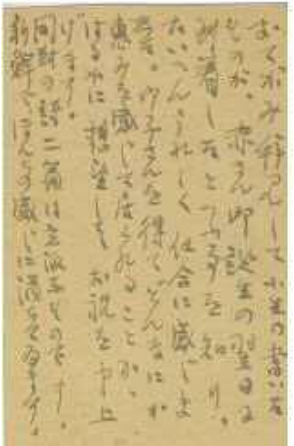 おくがみ拝見して小生の書いた
ものが、赤さん御誕生の翌日に
到着したといふ事を知り、
たいへんうれしく仕合に感じま
す。御子さんを得てどんなにか
恵みを感じて居られることか、
はるかに想望してお祝を申上
げます。
同封の詩二篇は立派なものです。
新鮮でほんとの感じに満ちてゐます。